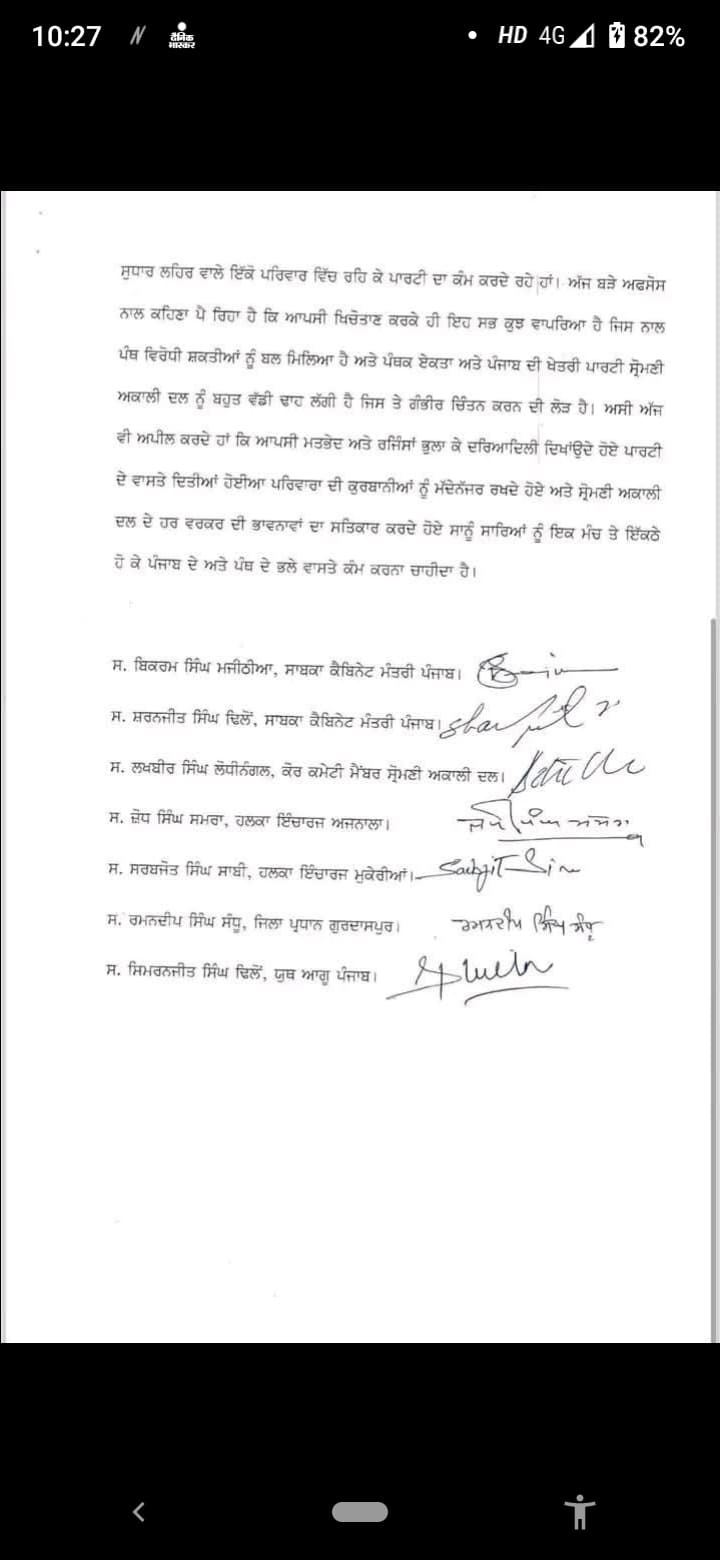 10:27
दैनिक
भास्कर
HD 4G 82%
ਸੁਧਾਰ ਲਹਿਰ ਵਾਲੇ ਇੱਕੋ ਪਰਿਵਾਰ ਵਿੱਚ ਰਹਿ ਕੇ ਪਾਰਟੀ ਦਾ ਕੰਮ ਕਰਦੇ ਰਹੇ ਹਾਂ। ਅੱਜ ਬੜੇ ਅਫਸੋਸ
ਨਾਲ ਕਹਿਣਾ ਪੈ ਰਿਹਾ ਹੈ ਕਿ ਆਪਸੀ ਖਿਚੋਤਾਣ ਕਰਕੇ ਹੀ ਇਹ ਸਭ ਕੁਝ ਵਾਪਰਿਆ ਹੈ ਜਿਸ ਨਾਲ
ਪੰਥ ਵਿਰੋਧੀ ਸ਼ਕਤੀਆਂ ਨੂੰ ਬਲ ਮਿਲਿਆ ਹੈ ਅਤੇ ਪੰਥਕ ਏਕਤਾ ਅਤੇ ਪੰਜਾਬ ਦੀ ਖੇਤਰੀ ਪਾਰਟੀ ਸ਼੍ਰੋਮਣੀ
ਅਕਾਲੀ ਦਲ ਨੂੰ ਬਹੁਤ ਵੱਡੀ ਢਾਹ ਲੱਗੀ ਹੈ ਜਿਸ ਤੇ ਗੰਭੀਰ ਚਿੰਤਨ ਕਰਨ ਦੀ ਲੋੜ ਹੈ। ਅਸੀ ਅੱਜ
ਵੀ ਅਪੀਲ ਕਰਦੇ ਹਾਂ ਕਿ ਆਪਸੀ ਮਤਭੇਦ ਅਤੇ ਰਜਿੰਸਾਂ ਭੁਲਾ ਕੇ ਦਰਿਆਦਿਲੀ ਦਿਖਾਂਉਦੇ ਹੋਏ ਪਾਰਟੀ
ਦੇ ਵਾਸਤੇ ਦਿਤੀਆਂ ਹੋਈਆ ਪਰਿਵਾਰਾ ਦੀ ਕੁਰਬਾਨੀਆਂ ਨੂੰ ਮੱਦੇਨੱਜਰ ਰਖਦੇ ਹੋਏ ਅਤੇ ਸ਼੍ਰੋਮਣੀ ਅਕਾਲੀ
ਦਲ ਦੇ ਹਰ ਵਰਕਰ ਦੀ ਭਾਵਨਾਵਾਂ ਦਾ ਸਤਿਕਾਰ ਕਰਦੇ ਹੋਏ ਸਾਨੂੰ ਸਾਰਿਆਂ ਨੂੰ ਇਕ ਮੰਚ ਤੇ ਇੱਕਠੇ
ਹੋ ਕੇ ਪੰਜਾਬ ਦੇ ਅਤੇ ਪੰਥ ਦੇ ਭਲੇ ਵਾਸਤੇ ਕੰਮ ਕਰਨਾ ਚਾਹੀਦਾ ਹੈ।
ਸ. ਬਿਕਰਮ ਸਿੰਘ ਮਜੀਠੀਆ, ਸਾਬਕਾ ਕੈਬਿਨੇਟ ਮੰਤਰੀ ਪੰਜਾਬ।
ਸ. ਸ਼ਰਨਜੀਤ ਸਿੰਘ ਢਿਲੋਂ, ਸਾਬਕਾ ਕੈਬਿਨੇਟ ਮੰਤਰੀ ਪੰਜਾਬ।
ਸ. ਲਖਬੀਰ ਸਿੰਘ ਲੋਧੀਨੰਗਲ, ਕੋਰ ਕਮੇਟੀ ਮੈਂਬਰ ਸ਼੍ਰੋਮਣੀ ਅਕਾਲੀ ਦਲ।
ਸ. ਜ਼ੋਧ ਸਿੰਘ ਸਮਰਾ, ਹਲਕਾ ਇੰਚਾਰਜ ਅਜਨਾਲਾ।
ਸ. ਸਰਬਜੋਤ ਸਿੰਘ ਸਾਬੀ, ਹਲਕਾ ਇੰਚਾਰਜ ਮੁਕੇਰੀਆਂ।
ਸ. ਰਮਨਦੀਪ ਸਿੰਘ ਸੰਧੂ, ਜਿਲਾ ਪ੍ਰਧਾਨ ਗੁਰਦਾਸਪੁਰ। ਰਮਨਦੀਪ ਸਿੰਘ ਸੰਧੂ
ਸ. ਸਿਮਰਨਜੀਤ ਸਿੰਘ ਢਿਲੋਂ, ਯੁਥ ਆਗੂ ਪੰਜਾਬ।